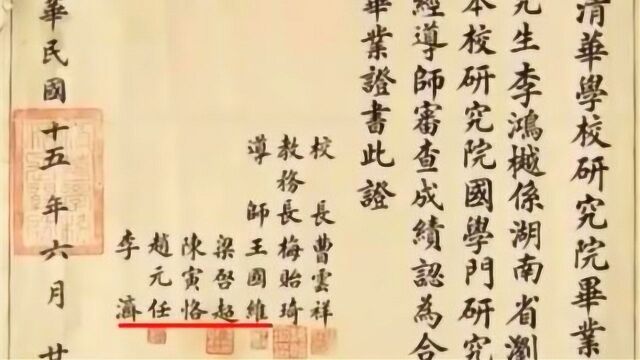 清華學校研究院畢業
究生李鴻樾係湖南省瀏
本校研究院國學門研究
經導師審查成績認為合
畢業證書此證
校長曹雲祥
教務長梅貽琦
導師王國維
梁啓超
陳寅恪
趙元任
李濟
華民國十五年六月廿